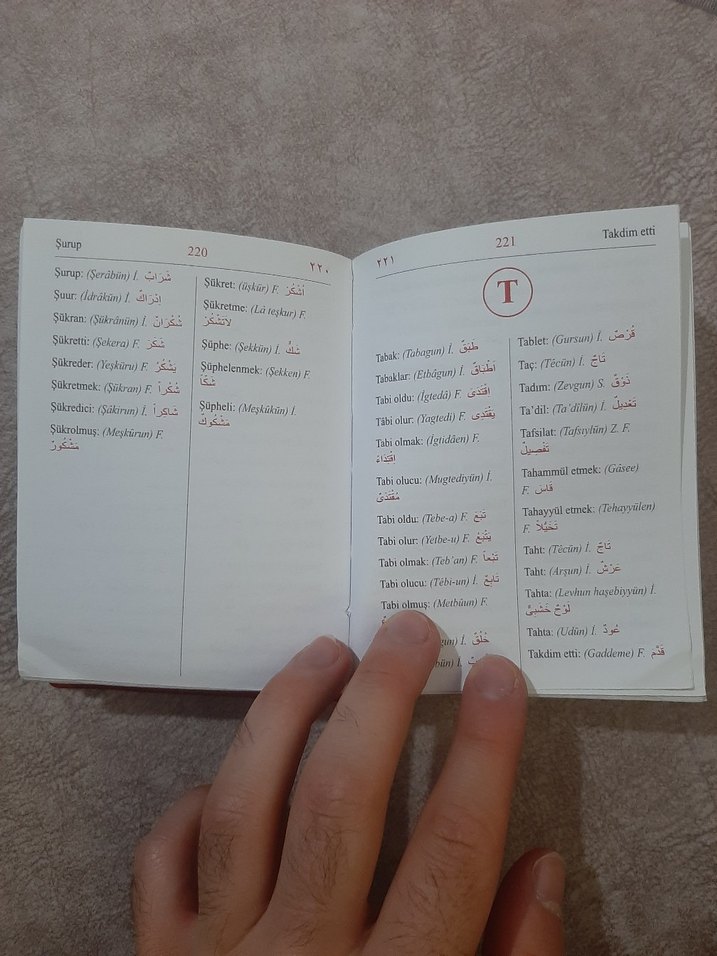 Şurup
220
٢٢٠
Şurup: (Şerâbün) İ. شَرَابٌ
Şuur: (İdrâkün) İ. اِدْرَاكٌ
Şükran: (Şükrânün) İ. شُكْرَانٌ
Şükretti: (Şekera) F. شَكَرَ
Şükreder: (Yeşküru) F. يَشْكُرُ
Şükretmek: (Şükran) F. شُكْراً
Şükredici: (Şâkirun) İ. شاكِراً
Şükrolmuş: (Meşkûrun) F.
مَشْكُورٌ
Şükret: (üşkür) F. اُشْكُرْ
Şükretme: (Lâ teşkur) F.
لاَتَشْكُرْ
Şüphe: (Şekkün) İ. شَكٌّ
Şüphelenmek: (Şekken) F.
شَكّاً
Şüpheli: (Meşkûkün) İ.
مَشْكُوكٌ
٢٢١
221
Takdim etti
T
Tabak: (Tabagun) İ. طَبَقٌ
Tabaklar: (Etbâgun) İ. اَطْبَاقٌ
Tabi oldu: (İgtedâ) F. اِقْتَدَى
Tâbi olur: (Yagtedi) F. يَقْتَدِى
Tabi olmak: (İgtidâen) F.
اِقْتِدَاءً
Tabi olucu: (Mugtediyün) İ.
مُقْتَدِىٌ
Tabi oldu: (Tebe-a) F. تَبَعَ
Tabi olur: (Yetbe-u) F. يَتْبَعُ
Tabi olmak: (Teb'an) F. تَبْعاً
Tabi olucu: (Tébi-un) İ. تَابِعٌ
Tabi olmuş: (Metbûun) F.
İ. خُلُقٌ
İ.
Tablet: (Gursun) İ. قُرْصٌ
Taç: (Têcün) İ. تَاجٌ
Tadım: (Zevgun) S. ذَوْقٌ
Ta'dil: (Ta'dîlün) İ. تَعْدِيلٌ
Tafsilat: (Tafsıylün) Z. F.
تَفْصِيلٌ
Tahammül etmek: (Gâsee)
F. قَاسَ
Tahayyül etmek: (Tehayyülen)
F. تَخَيُّلاً
Taht: (Têcün) İ. تاجٌ
Taht: (Arşun) İ. عَرْشٌ
Tahta: (Levhun haşebiyyün) İ.
لَوْحٌ خَشَبِىٌّ
Tahta: (Udün) İ. عُودٌ
Takdim etti: (Gaddeme) F. قَدَّم